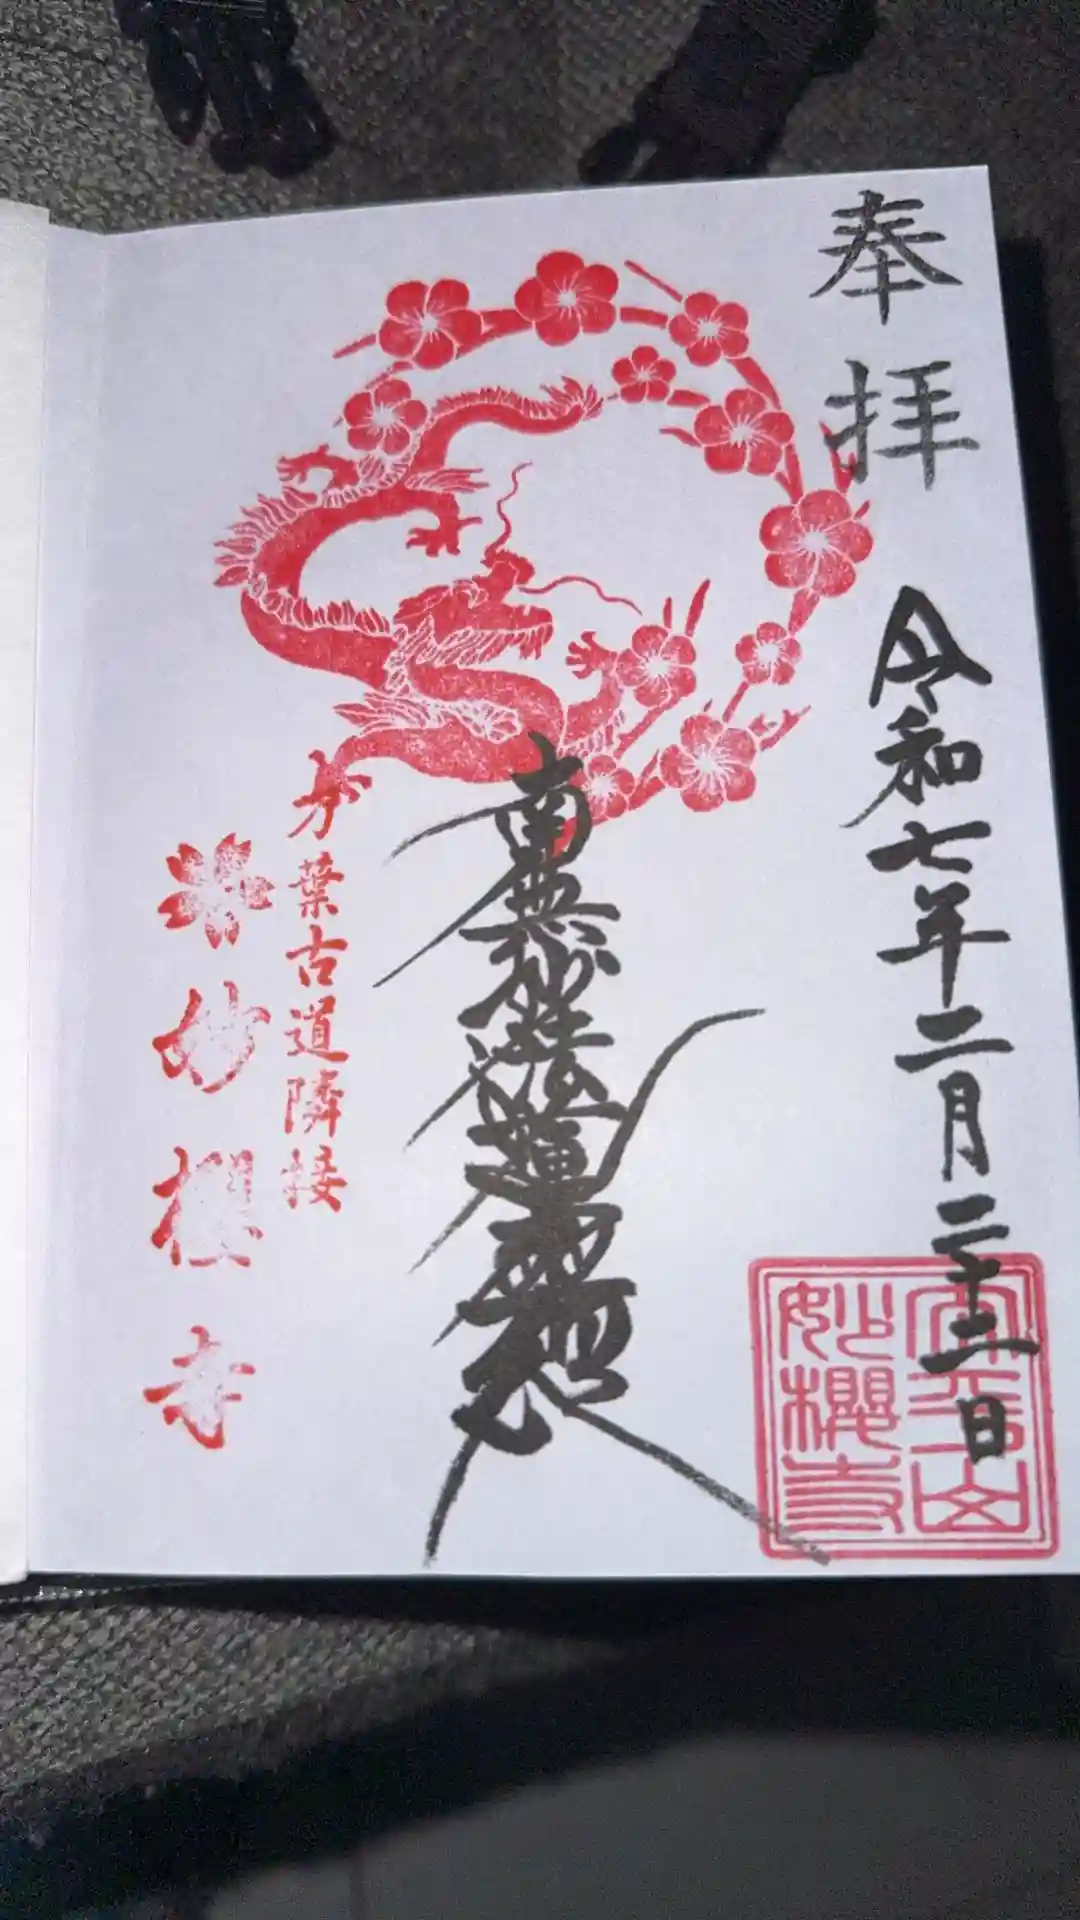 奉拝
令和七年二月二十二日
南無妙法蓮華経
古道隣接
妙櫻寺
妙櫻寺